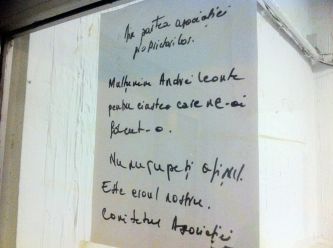 Din partea asociației
proprietarilor.
Mulțumim Andrei Leonte
pentru cinstea care ne-ai
făcut-o.
Nu rupeți afișul.
Este eroul nostru.
Comitetul Asociației